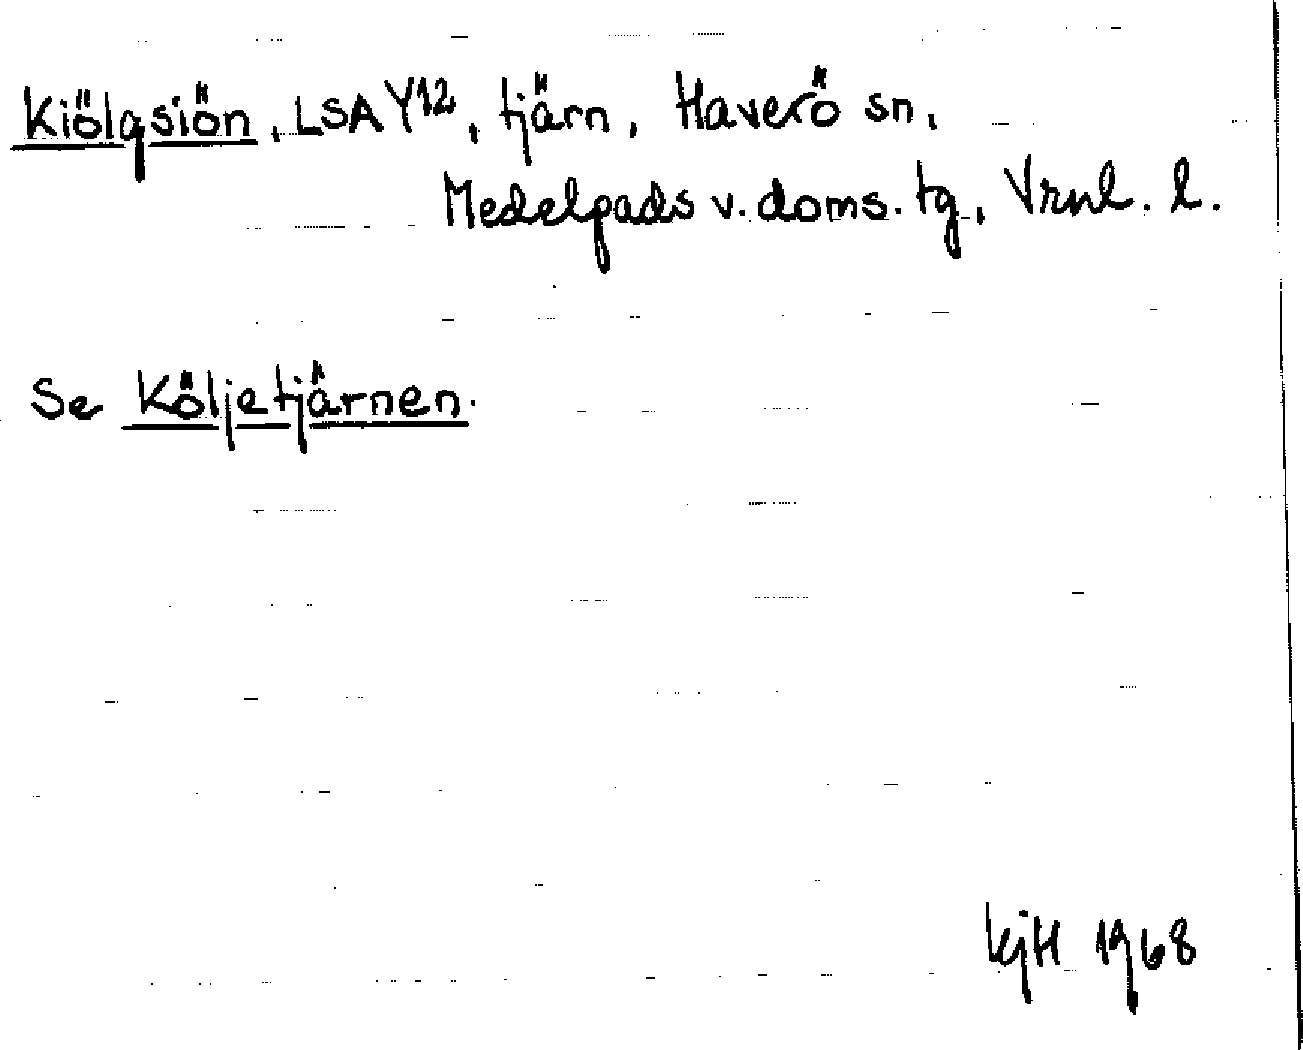 Kiölgsiön, LSA Y12, tjärn, Haverö sn,
Medelpads v. doms. tg, Vrnl. l.
Se Köljetjärnen.
kjH 1968